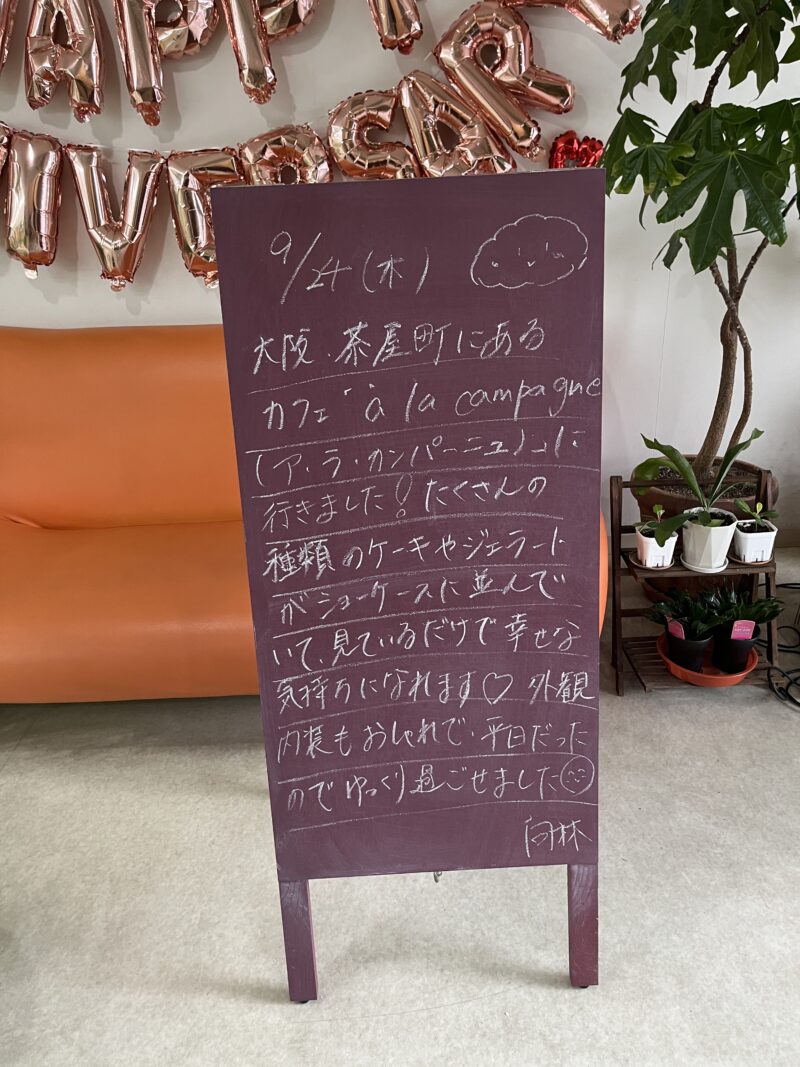 APPY
IVERSARY
9/24(木)
大阪、茶屋町にある
カフェ"à la campagne
(ア・ラ・カンパーニュ)」に
行きました!たくさんの
種類のケーキやジェラート
がショーケースに並んで
いて、見ているだけで幸せな
気持ちになれます♡ 外観
内装もおしゃれで、平日だった
のでゆっくり過ごせました
向林